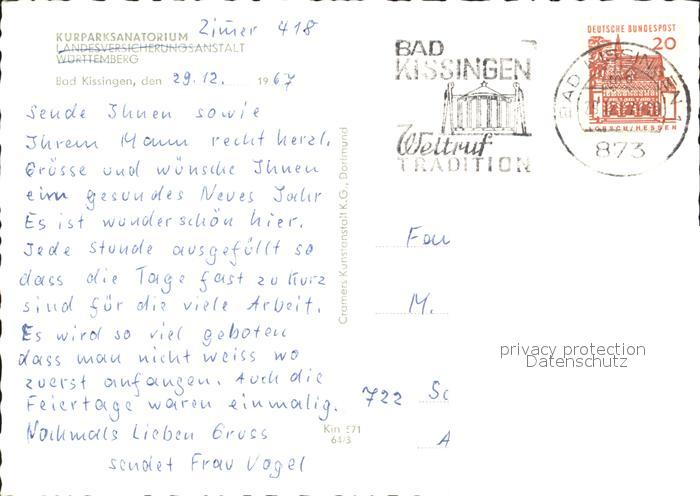 Zimer 418
KURPARKSANATORIUM
LANDESVERSICHERUNGSANSTALT
WÜRTTEMBERG
Bad Kissingen, den 29.12. 1967
sende Ihnen sowie
Ihrem Mann recht herzl.
Grüsse und wünsche Ihnen
ein gesundes Neues Jahr
Es ist wunderschön hier.
Jede Stunde ausgefüllt so
dass die Tage fast zu kurz
sind für die viele Arbeit.
Es wird so viel geboten
dass man nicht weiss wo
zuerst anfangen. Auch die
Feiertage waren einmalig.
Nochmals Lieben Gruss
sendet Frau Vogel
Cramers Kunstanstalt K.G., Dortmund
Kin 571
64/3
BAD
KISSINGEN
Weltruf
TRADITION
DEUTSCHE BUNDESPOST
20
LORSCH/HESSEN
BAD KISSINGEN
873
M.
722 Sc
A
privacy protection
Datenschutz